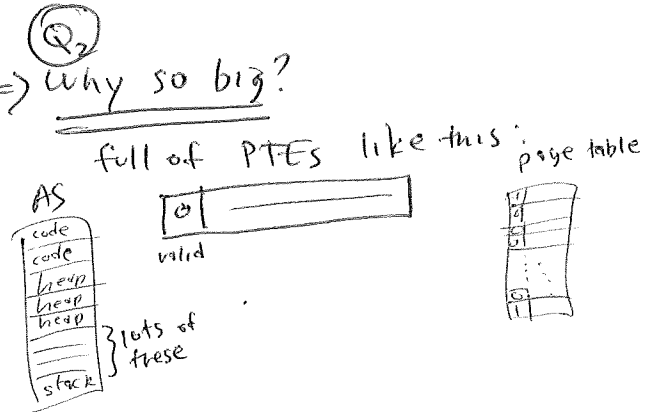 Q2
=> Why so big?
full of PTEs like this:
page table
AS
0
valid
code
code
heap
heap
heap
lots of
these
stack
1
0
0
1